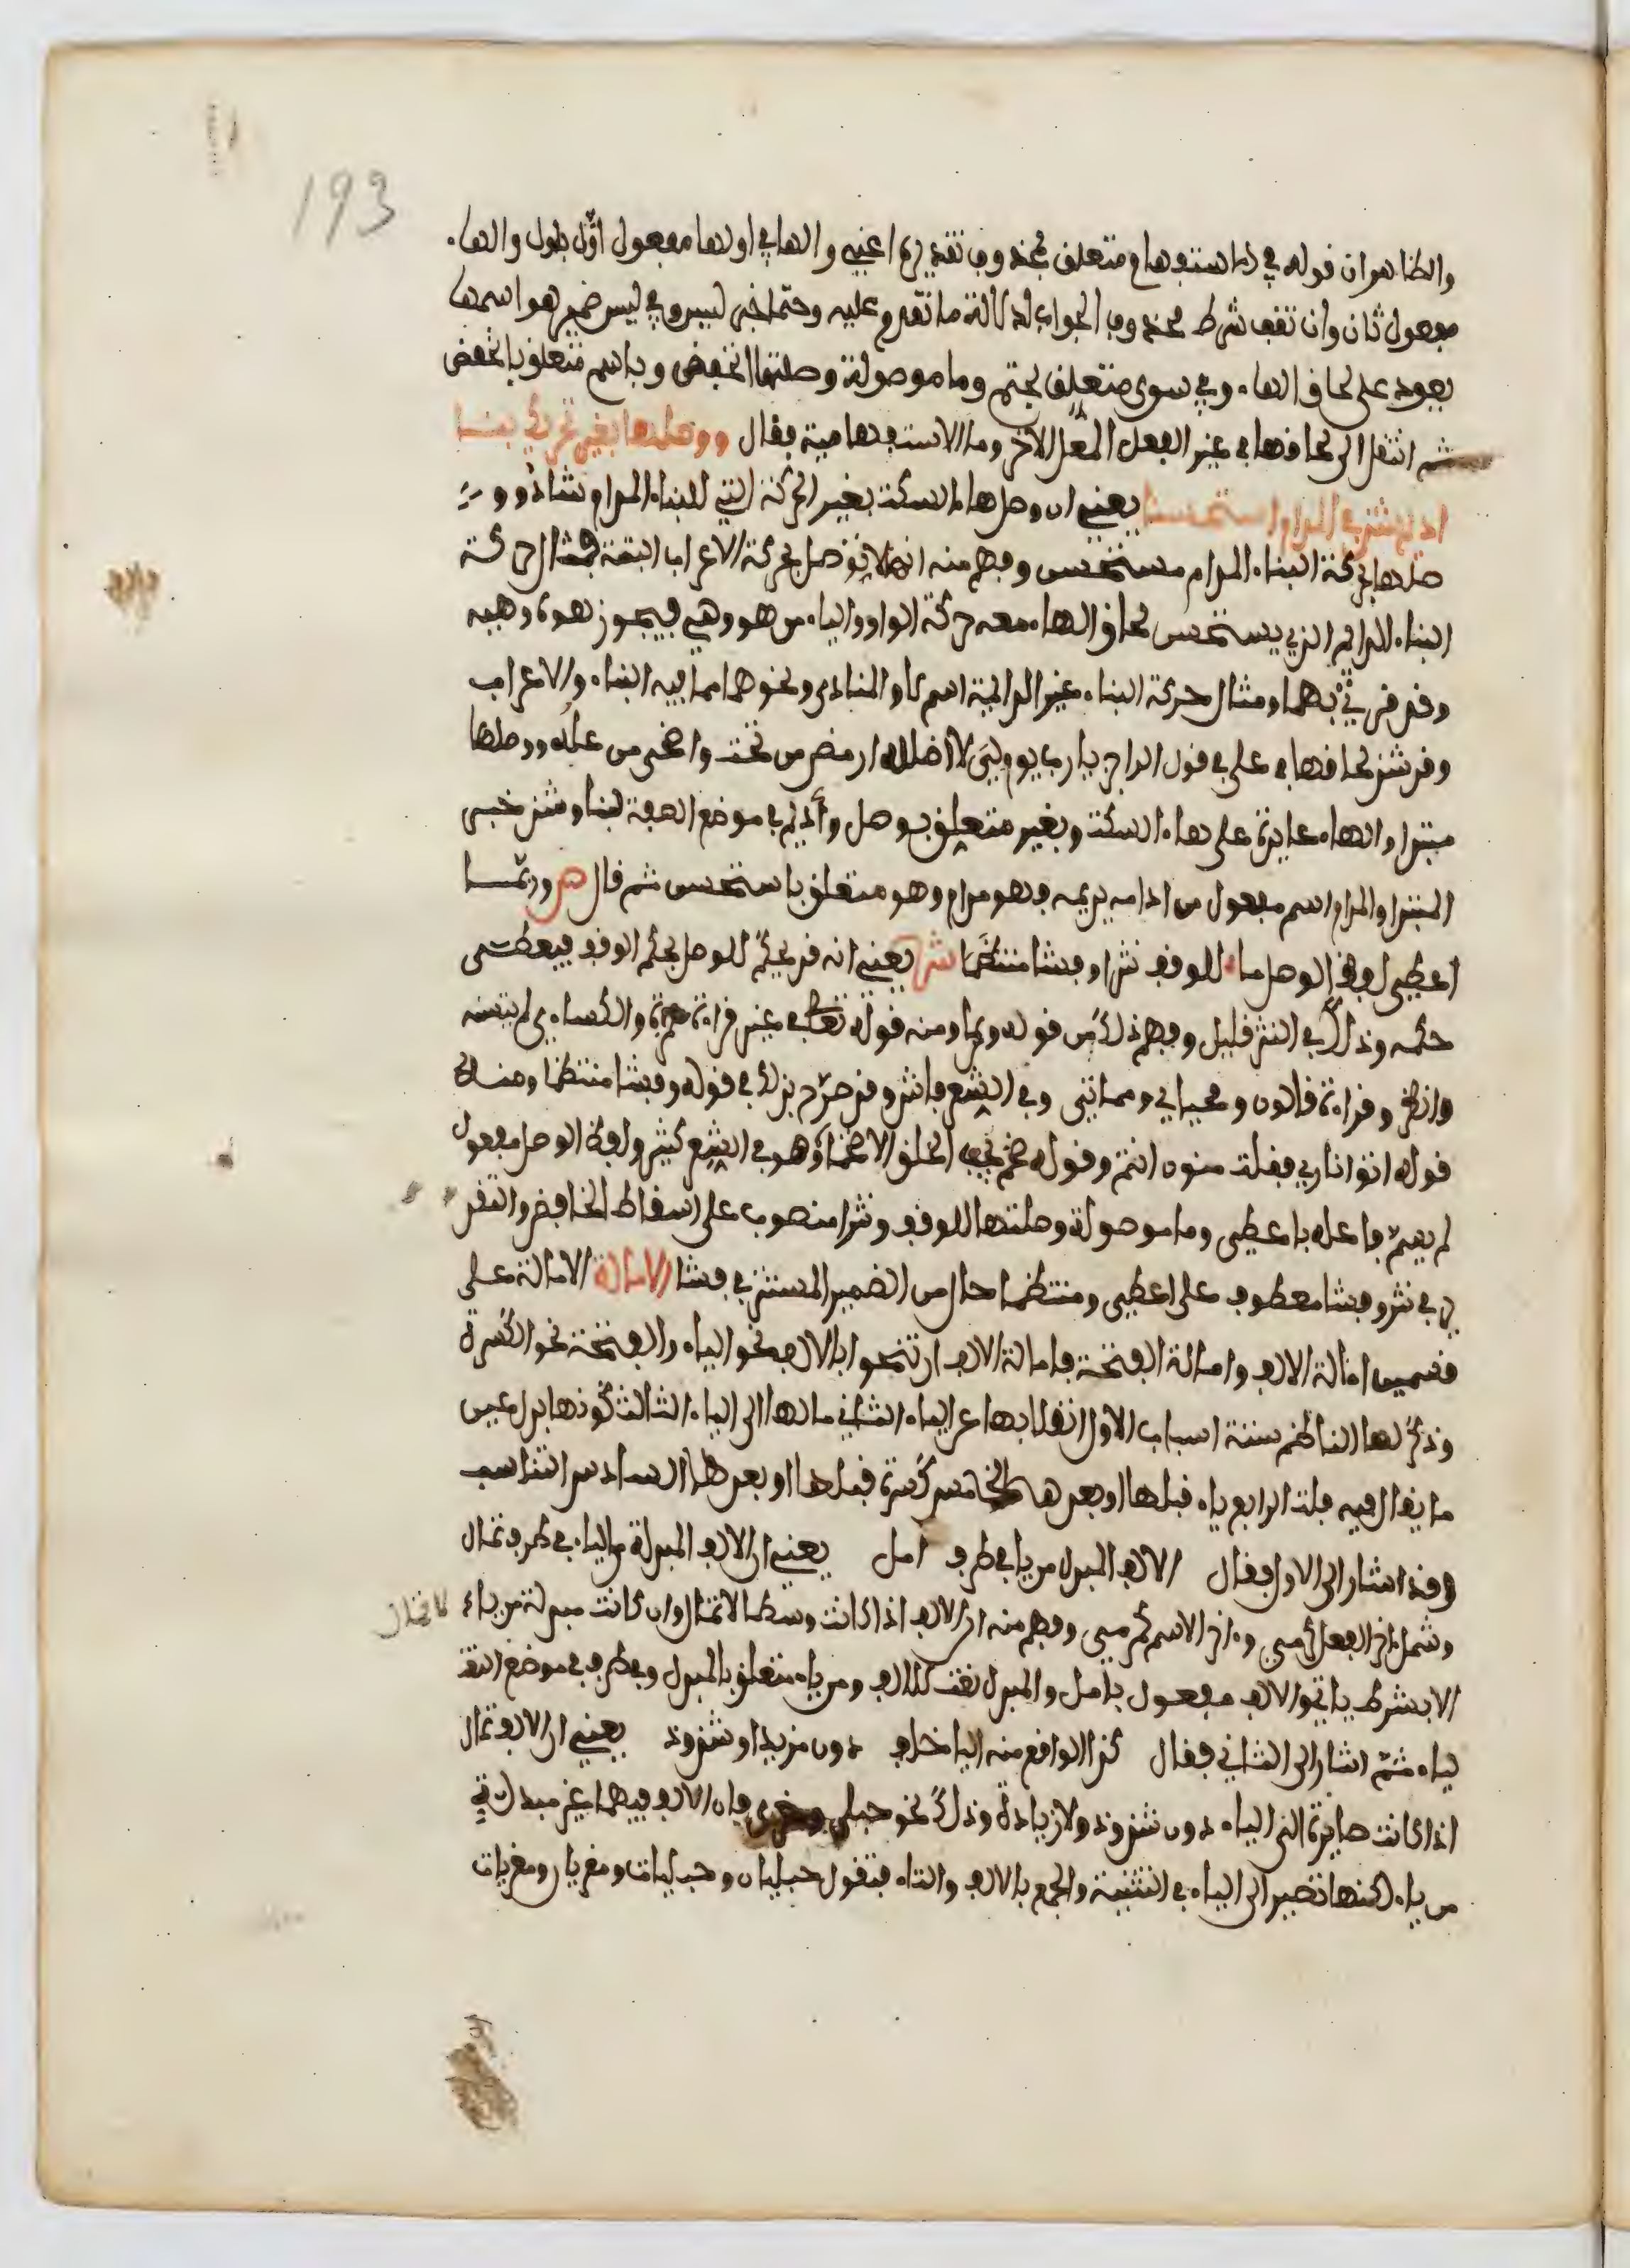 193
والظاهر ان قوله في ما استفهام متعلق بمحذوف تقديره اعني والها في اولها مفعول اول باول والهاء
مفعول ثان وان تقف شرط محذوف الجواب لدلالة ما تقدم عليه وحتما خبر ليس وفي ليس ضمير هو اسمها
يعود على لحاق الهاء وفي سوى متعلق بحتم وما موصولة وصلتها انخفض وباسم متعلق بانخفض
ثم انتقل الى لحاقها في غير الفعل المعل الاخر وما الاستفهامية فقال ووصلها بغير تحريك بنا
اديم شذ في المدام استحسنا يعني ان وصل هاء السكت بغير الحركة التي للبناء المدام شاذ وو
صلها بحركة البناء المدام مستحسن وفهم منه انها لا توصل بحركة الاعراب البتة فمثال حركة
البناء الدائم الذي يستحسن لحاق الهاء معه حركة الواو والياء من هو وهي فيجوز هوه وهيه
وقد قرئ بهما ومثال حركة البناء غير الدائمة اسم لا والمنادى ونحوهما مما فيه البناء والاعراب
وقد شذ لحاقها في على في قول الراجز يا رب يوم لي لا اظلله ارمض من تحت واضحى من عله ووصلها
مبتدا والهاء عايدة على هاء السكت وبغير متعلق بوصل وأديم في موضع الصفة لبنا وشذ خبر
المبتدا والمدام اسم مفعول من ادامه يديمه فهو مدام وهو متعلق باستحسن ثم قال ص وربما
اعطي لفظ الوصل ما للوقف نثرا وفشا منتظما ش يعني انه قد يحكم للوصل بحكم الوقف فيعطى
حكمه وذلك في النثر قليل وفهم ذلك من قوله وربما ومنه قوله تعالى في غير قراءة حمزة والكساءي لم يتسنه
وانظر وقراءة قالون ومحياي ومماتي وفي الشعر فاش وقد صرح بذلك في قوله وفشا منتظما ومنه
قوله اتوا ناري فقلت منون انتم وقوله ضخم يحب الخلق الاضخما وهو في الشعر كثير ولفظ الوصل مفعول
لم يسم فاعله باعطي وما موصولة وصلتها للوقف ونثرا منصوب على اسقاط الخافض والتقد
ير في نثر وفشا معطوف على اعطي ومنتظما حال من الضمير المستتر في فشا الامالة الامالة على
قسمين امالة الالف وامالة الفتحة فامالة الالف ان تنحوا بالالف نحو الياء والفتحة نحو الكسرة
وذكر لها الناظم ستة اسباب الاول انقلابها عن الياء الثاني مالها الى الياء الثالث كونها بدل عين
ما يقال فيه فلت الرابع ياء قبلها او بعدها الخامس كسرة قبلها او بعدها السادس التناسب
وقد اشار الى الاول فقال الالف المبدل من يا في طرف امل يعني ان الالف المبدلة من الياء في طرف تمال
وشمل اخر الفعل كرمى واخر الاسم كمرمى وفهم منه ان الالف اذا كانت وسطا لا تمال وان كانت مبدلة من ياء لا تمال
الا بشرط ياتي والالف مفعول بامل والمبدل نعت للالف ومن ياء متعلق بالمبدل وفي طرف في موضع النعت
لياء ثم اشار الى الثاني فقال كذا الواقع منه اليا خلف دون مزيد او شذوذ يعني ان الالف تمال
اذا كانت صايرة الى الياء دون شذوذ ولا زيادة وذلك نحو حبلى ومغزى فان الالف فيهما غير مبدلة
من ياء لكنها تصير الى الياء في التثنية والجمع بالالف والتاء فتقول حبليان وحبليات ومغزيان ومغزيات